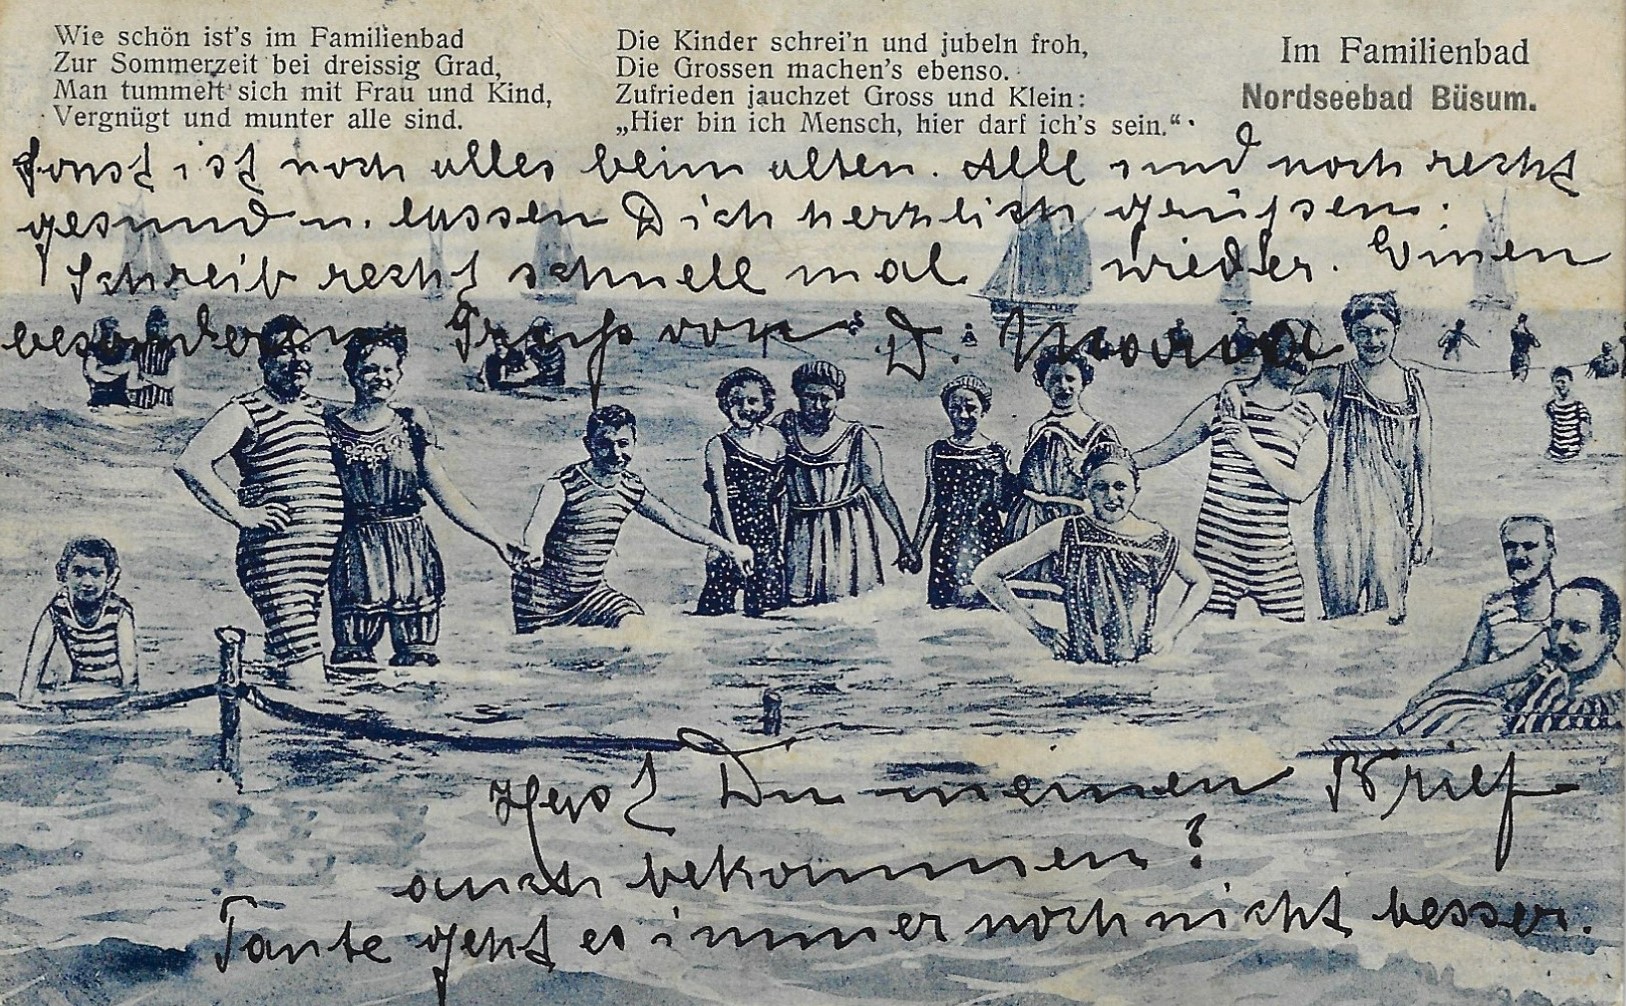 Wie schön ist's im Familienbad
Zur Sommerzeit bei dreissig Grad,
Man tummelt sich mit Frau und Kind,
Vergnügt und munter alle sind.
Die Kinder schrei'n und jubeln froh,
Die Grossen machen's ebenso.
Zufrieden jauchzet Gross und Klein:
„Hier bin ich Mensch, hier darf ich's sein.“
Im Familienbad
Nordseebad Büsum.
Sonst ist noch alles beim alten. Alle sind noch recht
gesund u. lassen Dich herzlich grüßen.
Schreib recht schnell mal wieder. Einen
besonderen Gruß von D.
Hast Du meinen Brief
auch bekommen?
Tante geht es immer noch nicht besser.